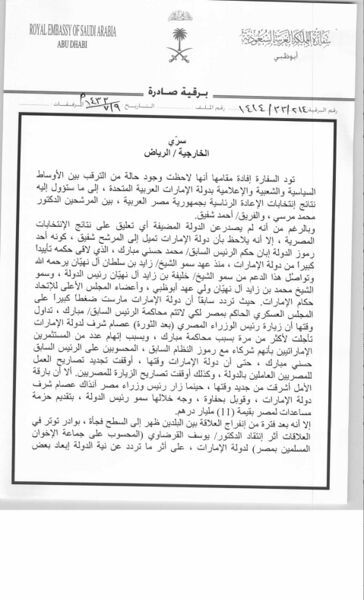 ROYAL EMBASSY OF SAUDI ARABIA
ABU DHABI
سفارة المملكة العربية السعودية
أبوظبي
برقية صادرة
رقم البرقية ١٤١٤/٣٣/٢١٤ رقم الملف التاريخ ١٤٣٣/٧/٩ المرفقات
سري
الخارجية / الرياض
تود السفارة إفادة مقامها أنها لاحظت وجود حالة من الترقب بين الأوساط
السياسية والشعبية والإعلامية بدولة الإمارات العربية المتحدة ، إلى ما ستؤول إليه
نتائج إنتخابات الإعادة الرئاسية بجمهورية مصر العربية ، بين المرشحين الدكتور
محمد مرسي ، والفريق/ أحمد شفيق.
وبالرغم من أنه لم يصدرعن الدولة المضيفة أي تعليق على نتائج الإنتخابات
المصرية ، إلا إنه يلاحظ بأن دولة الإمارات تميل إلى المرشح شفيق ، كونه أحد
رموز الدولة إبان حكم الرئيس السابق/ محمد حسني مبارك ، الذي لاقى حكمه تأييدا
كبيرا من دولة الإمارات ، منذ عهد سمو الشيخ/ زايد بن سلطان آل نهيان يرحمه الله
وتواصل هذا الدعم من سمو الشيخ/ خليفة بن زايد آل نهيان رئيس الدولة ، وسمو
الشيخ محمد بن زايد آل نهيان ولي عهد أبوظبي ، وأعضاء المجلس الأعلى للإتحاد
حكام الإمارات. حيث تردد سابقا أن دولة الإمارات مارست ضغطا كبيرا على
المجلس العسكري الحاكم بمصر لكي لاتتم محاكمة الرئيس السابق/ مبارك ، تداول
وقتها أن زيارة رئيس الوزراء المصري (بعد الثورة) عصام شرف لدولة الإمارات
تأجلت لأكثر من مرة بسبب محاكمة مبارك ، وبسبب إتهام عدد من المستثمرين
الإماراتيين بأنهم شركاء مع رموز النظام السابق ، المحسوبين على الرئيس السابق
حسني مبارك ، حتى أن دولة الإمارات وقتها ، أوقفت تجديد تصاريح العمل
للمصريين العاملين بالدولة ، وكذلك أوقفت تصاريح الزيارة للمصريين. ألا أن بارقة
الأمل أشرقت من جديد وقتها ، حينما زار رئيس وزراء مصر آنذاك عصام شرف
دولة الإمارات ، وقوبل بحفاوة ، وجه خلالها سمو رئيس الدولة ، بتقديم حزمة
مساعدات لمصر بقيمة (11) مليار درهم.
إلا أنه بعد فترة من إنفراج العلاقة بين البلدين ظهر إلى السطح فجأة ، بوادر توتر في
العلاقات أثر إنتقاد الدكتور/ يوسف القرضاوي (المحسوب على جماعة الإخوان
المسلمين بمصر) لدولة الإمارات ، على أثر ما تردد عن نية الدولة إبعاد بعض